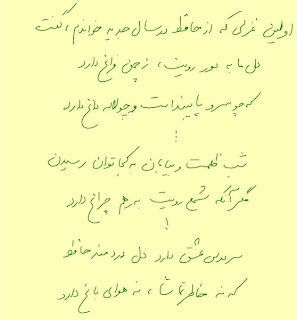 اولین غزلی که از حافظ در سال جدید خواندم، گفت
دل ما به دور رویت، ز چمن فراغ دارد
که چو سرو پایبند است و چو لاله داغ دارد
!
شب ظلمت و بیابان به کجا توان رسیدن
مگر آنکه شمع رویت به رهم چراغ دارد
!
سر درس عشق دارد دل دردمند حافظ
که نه خاطر تماشا، نه هوای باغ دارد